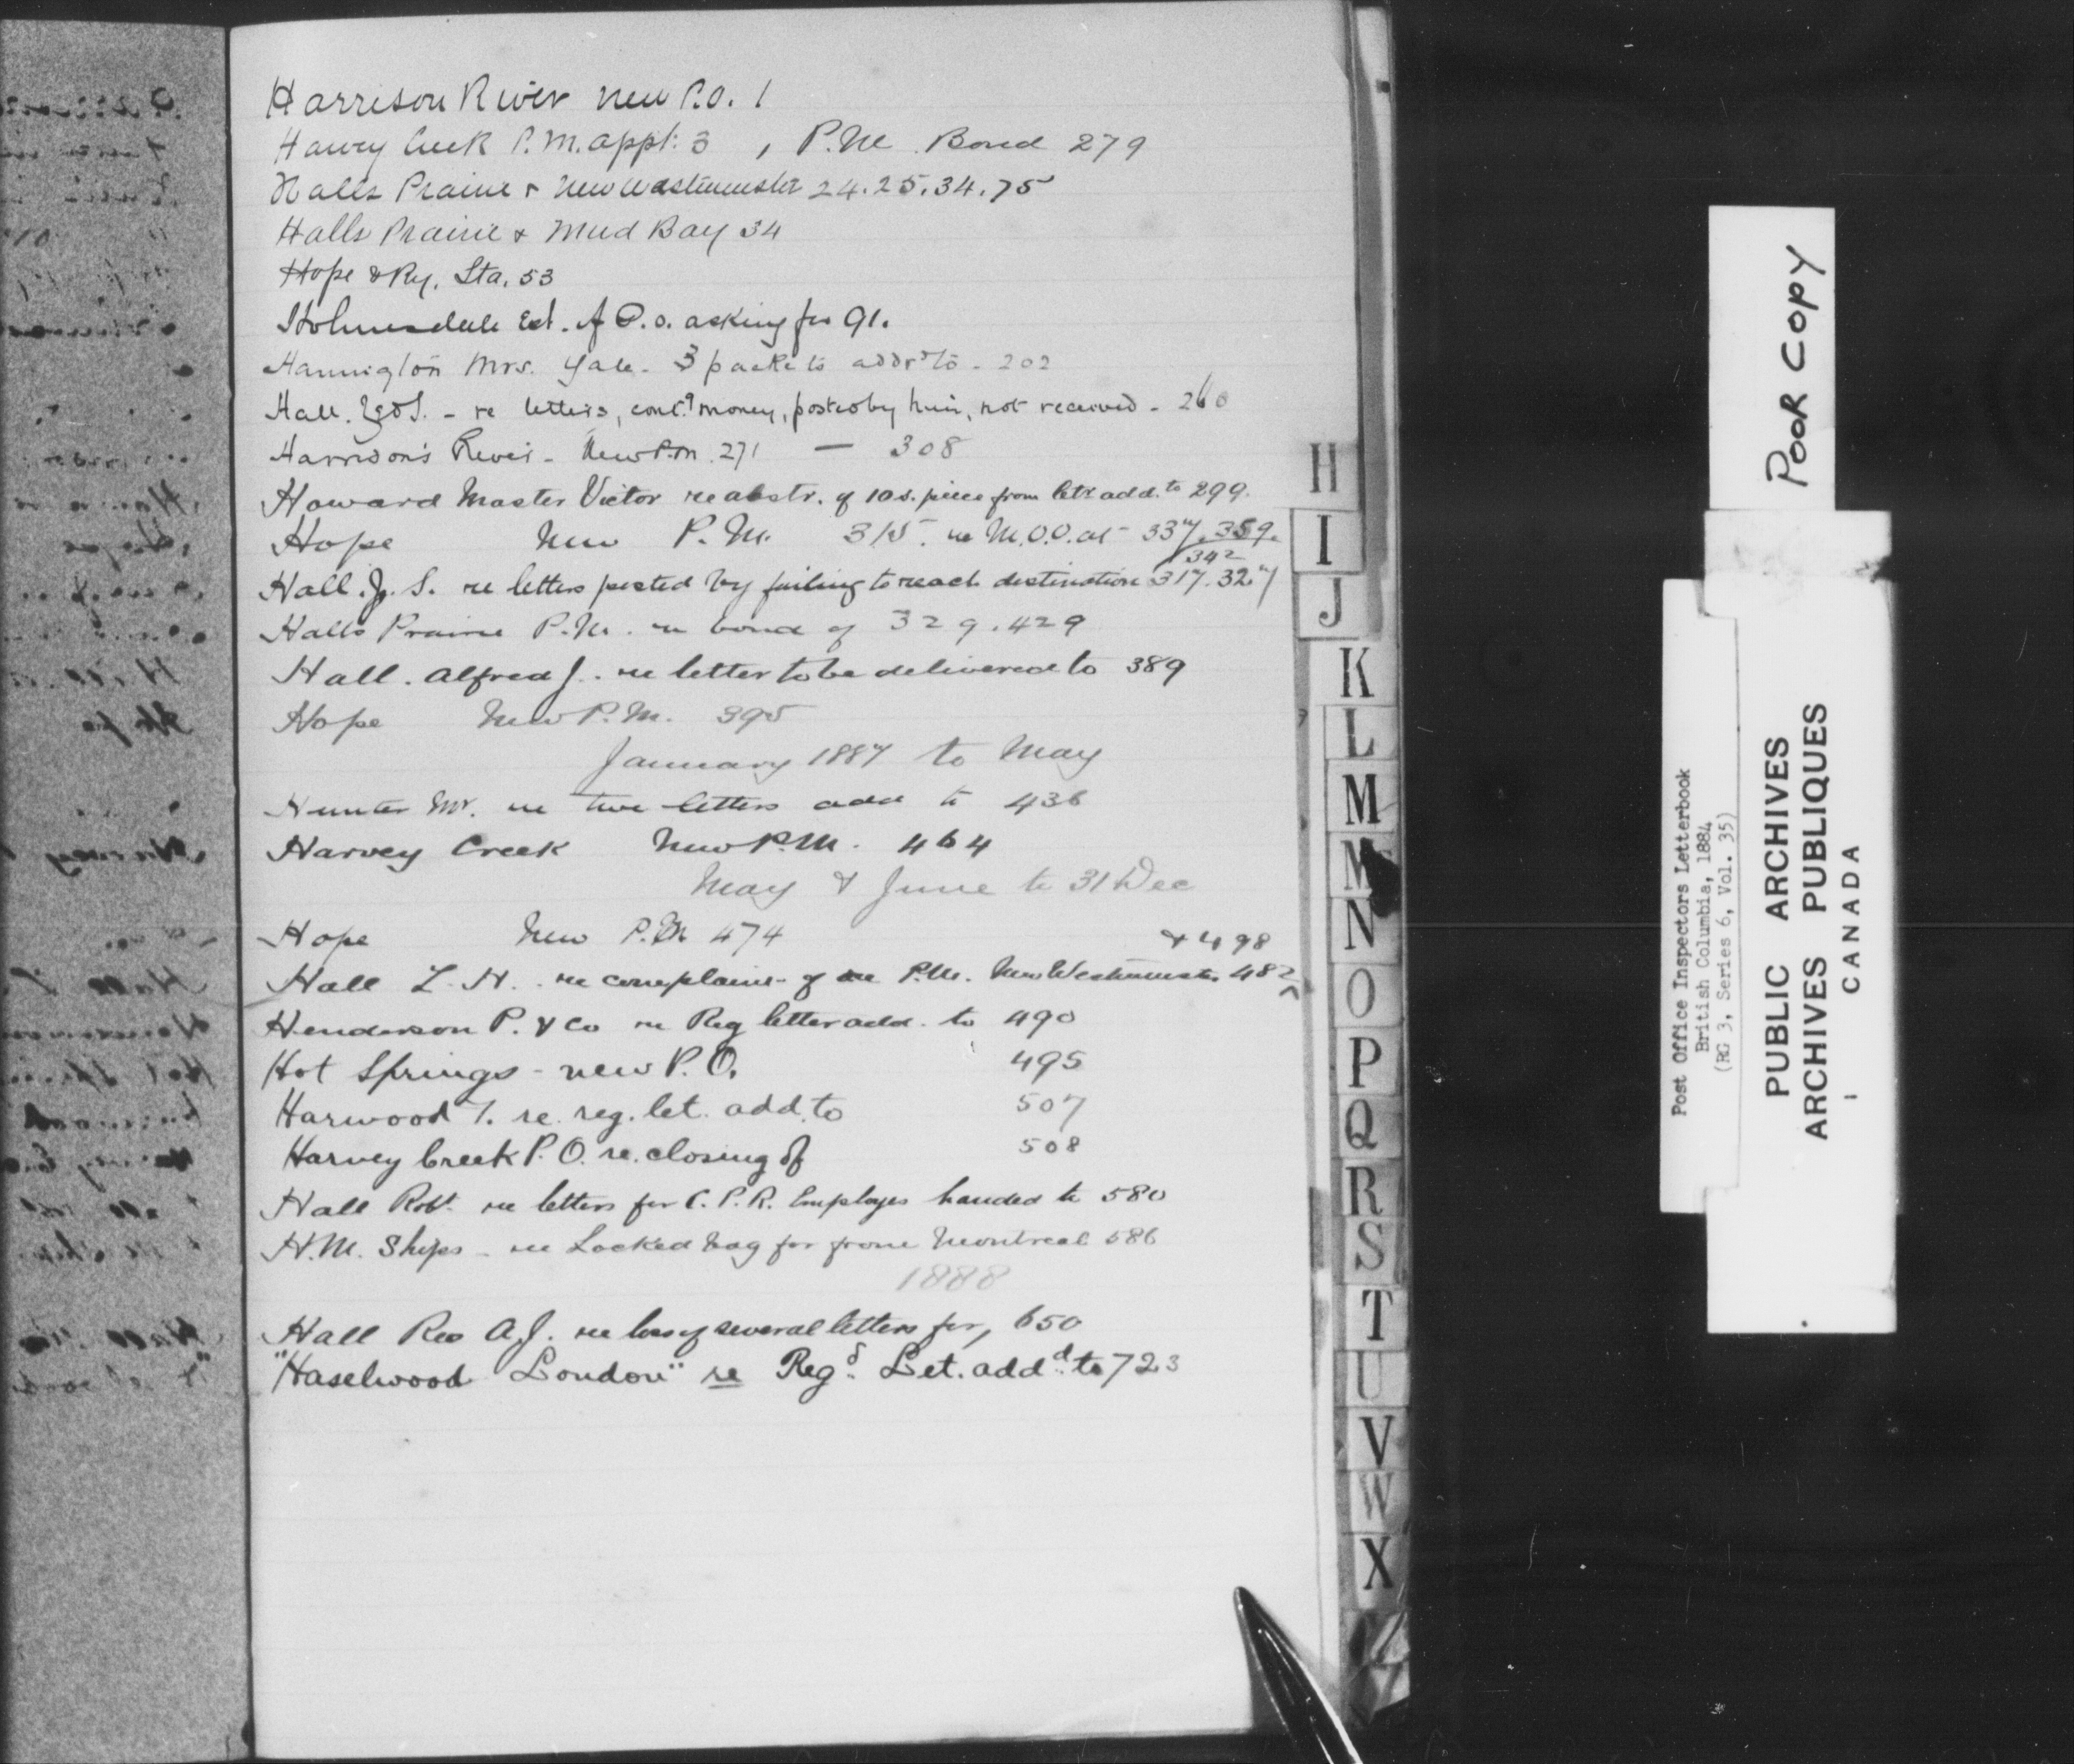 Harrison River new P.O. 1
Harvey Creek P.M. appt: 3 , P.M. Bond 279
Halls Prairie & New Westminster 24.25.34.75
Halls Prairie & Mud Bay 34
Hope & Ry. Sta. 53
Holmesdale Est. of P.O. asking for 91.
Hannington Mrs. Yale - 3 packets addrd to - 202
Hall. - re letters, contg money, posted by him, not received - 260
Harrison's River - New P.M. 271 — 308
Howard Master Victor re abstr. of 10s. piece from letr add. to 299.
Hope New P.M. 315. re M.O.O. at 337. 359.
342
Hall. J. S. re letters posted by failing to reach destination 317. 327
Halls Prairie P.M. re bond of 329. 429
Hall. Alfred J. re letter to be delivered to 389
Hope New P.M. 395
January 1887 to May
Hunter Mr. re two letters add to 436
Harvey Creek New P.M. 464
May & June to 31 Dec
Hope New P.M. 474
& 498
Hall L. H. re complaint of P.M. New Westminster 482
Henderson P. & Co re Reg letter add. to 490
Hot Springs - new P.O. 495
Harwood T. re. reg. let. add. to 507
Harvey Creek P.O. re. closing of 508
Hall Robt. re letters for C.P.R. Employes handed to 580
H.M. Ships - re Locked bag for from Montreal 586
1888
Hall Rev A.J. re loss of several letters for, 650
"Haselwood London" re Regd. Let. addd. to 723
H
I
J
K
L
M
M
N
O
P
Q
R
S
T
U
V
W
X
POOR COPY
Post Office Inspectors Letterbook
British Columbia, 1884
(RG 3, Series 6, Vol. 35)
PUBLIC ARCHIVES
ARCHIVES PUBLIQUES
CANADA